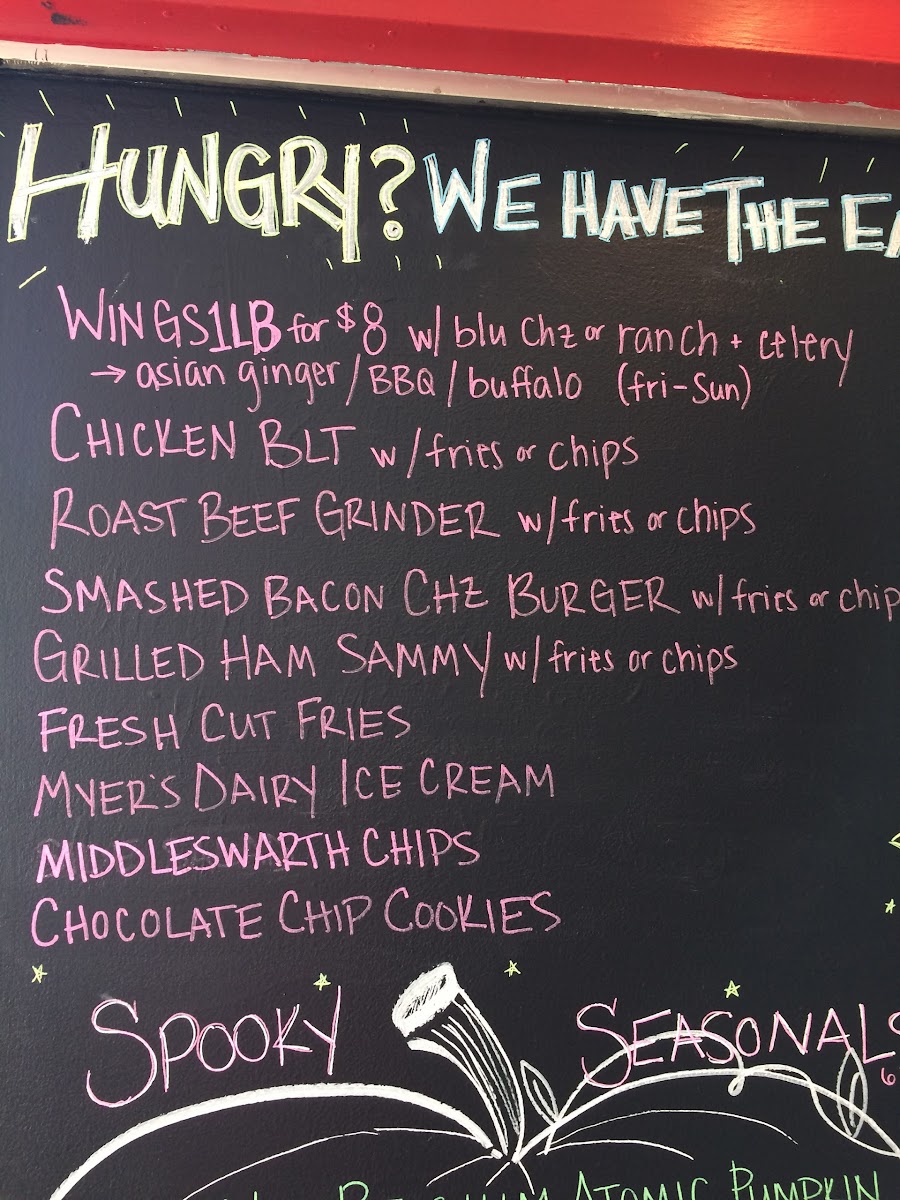 HUNGRY? WE HAVE THE EA
WINGS 1LB for $8 w/ blu Chz or ranch + celery
→ asian ginger / BBQ / buffalo (fri-Sun)
CHICKEN BLT w/ fries or chips
ROAST BEEF GRINDER w/ fries or chips
SMASHED BACON CHZ BURGER w/ fries or chip
GRILLED HAM SAMMY w/ fries or chips
FRESH CUT FRIES
MYER'S DAIRY ICE CREAM
MIDDLESWARTH CHIPS
CHOCOLATE CHIP COOKIES
SPOOKY SEASONALS
6
ATOMIC PUMPKIN